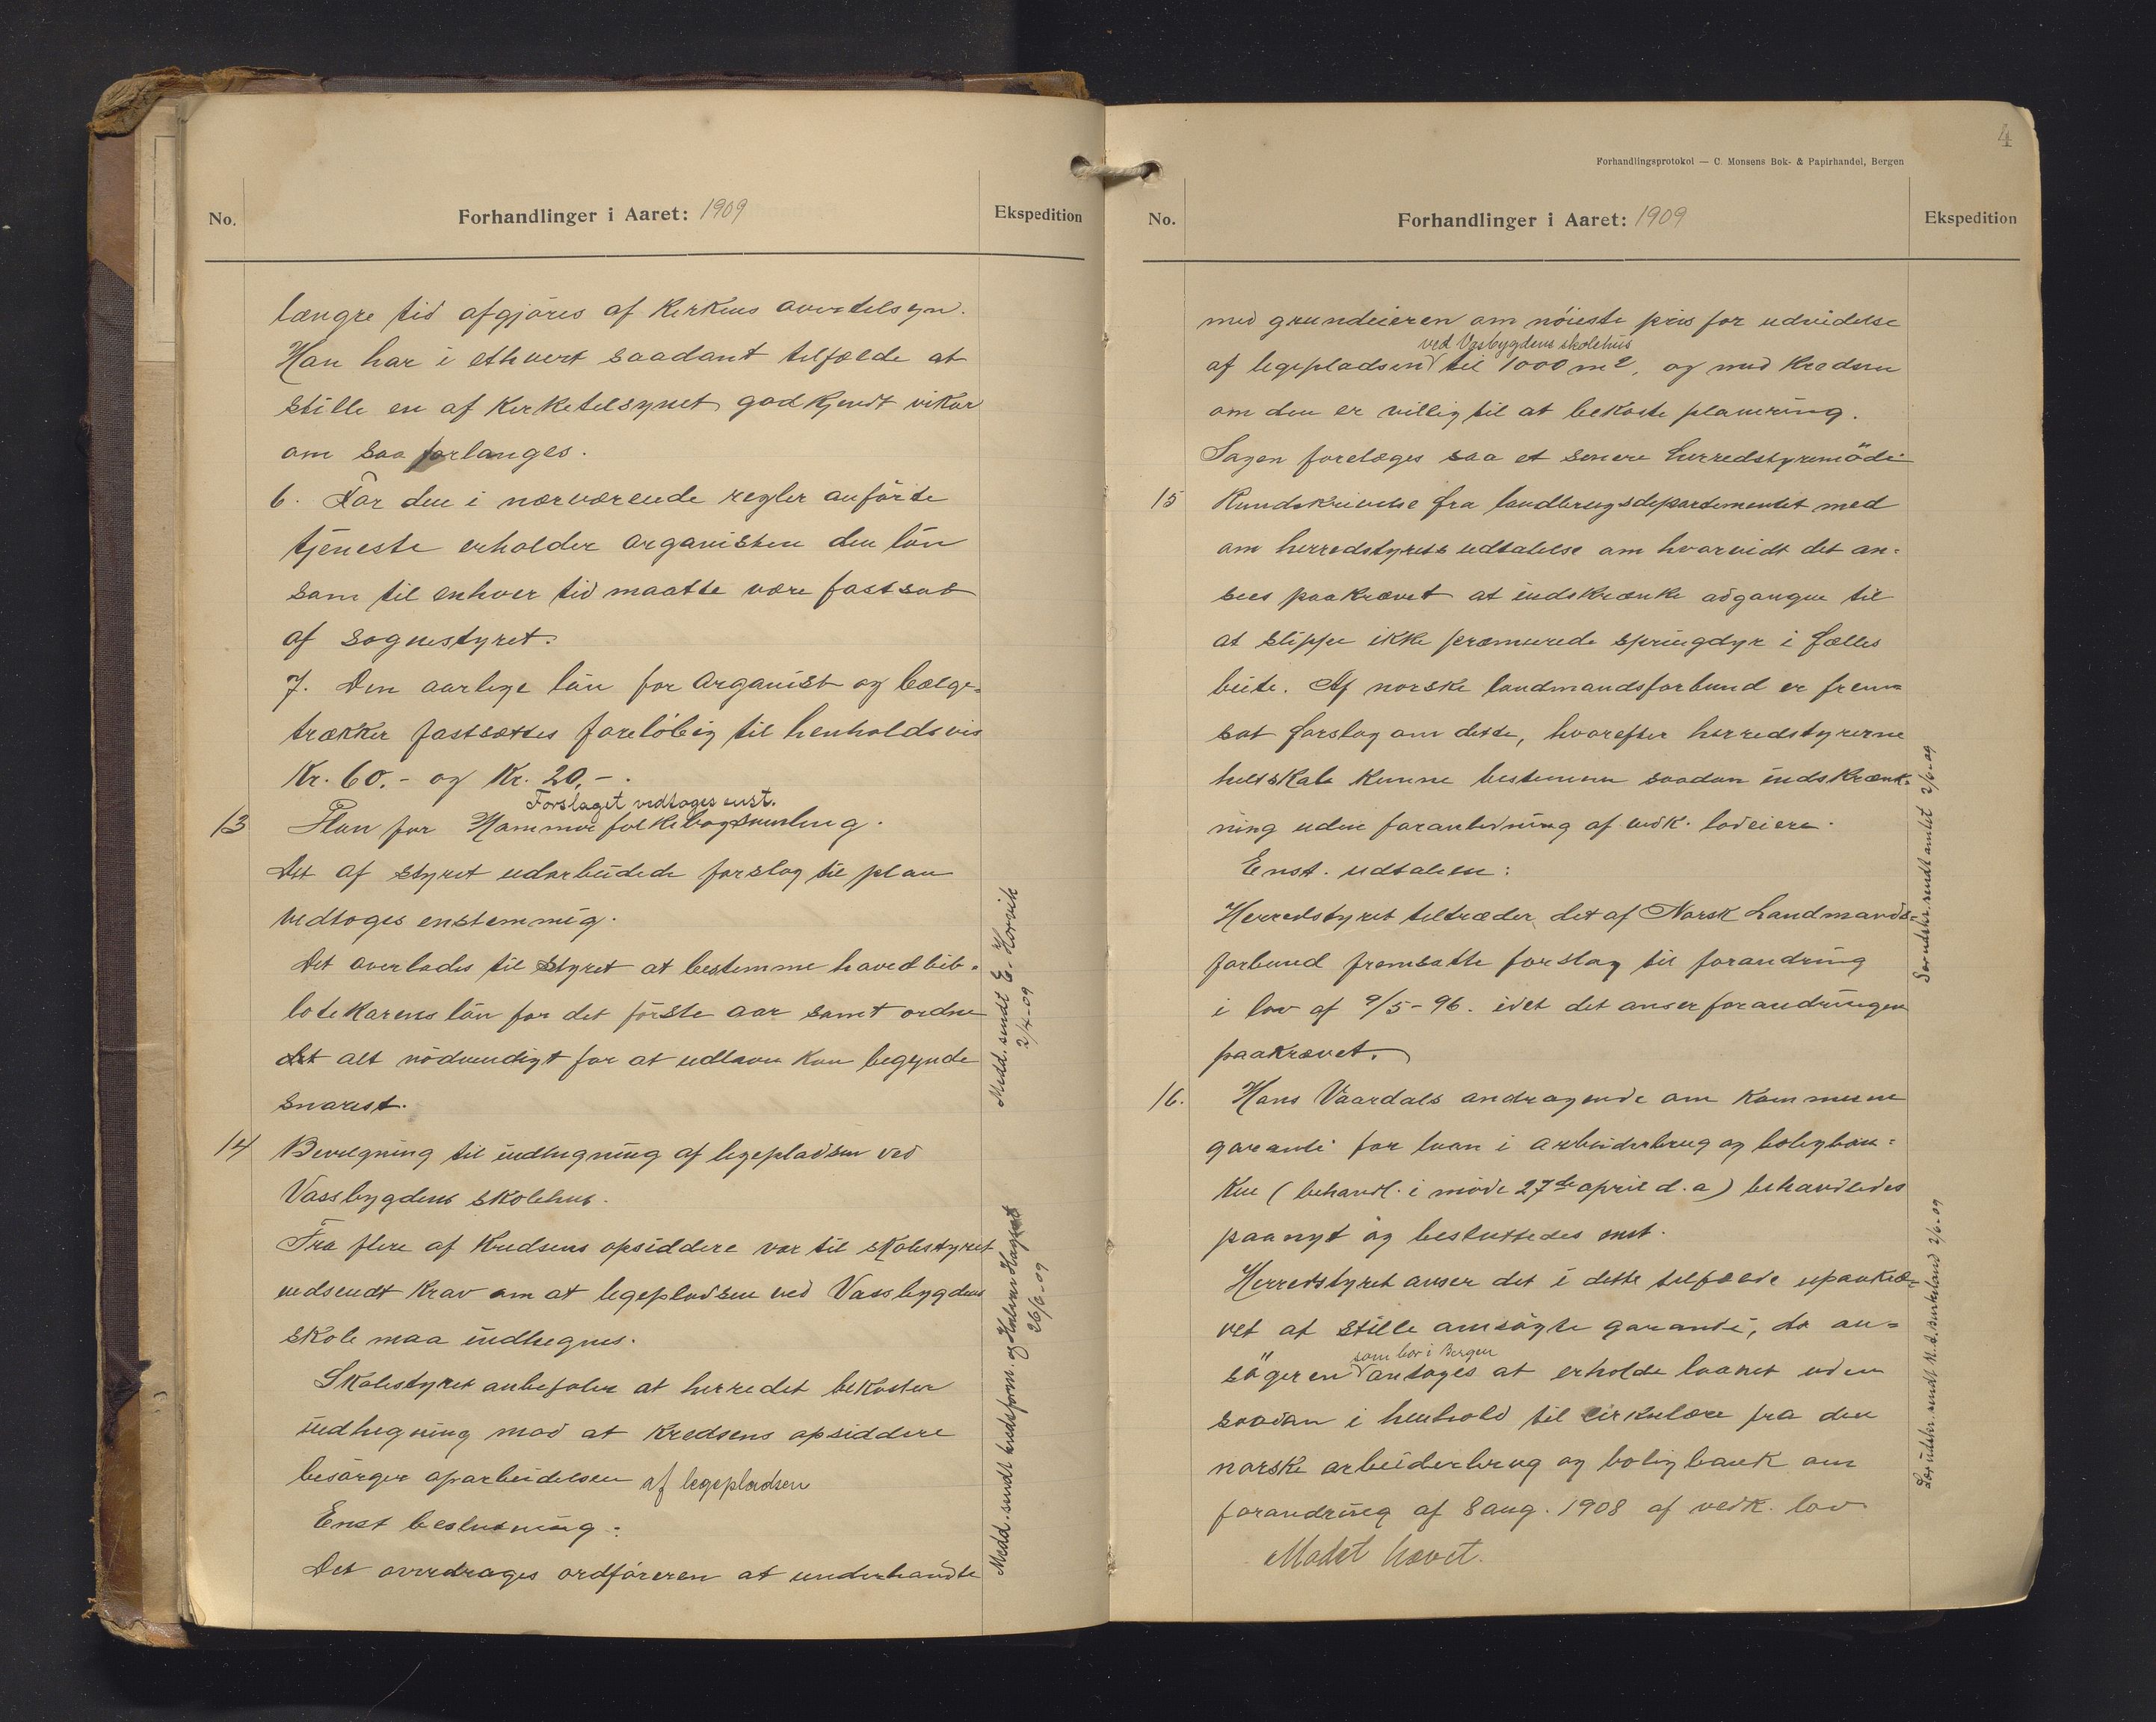 No.
Forhandlinger i Aaret: 1909
Ekspedition
længre tid afgjøres af Kirkens overtilsyn.
Han har i ethvert saadant tilfælde at
stille en af Kirketilsynet godkjendt vikar
om saa forlanges.
6. For den i nærværende regler anförte
tjeneste erholder organisten den lön
som til enhver tid maatte være fastsat
af sognestyret.
7. Den aarlige lön for organist og bælge-
trækker fastsættes foreløbig til henholdsvis
Kr. 60.- og Kr. 20.-.
Forslaget vedtoges enst.
13 Plan for Hammer folkebogsamling.
Det af styret udarbeidede forslag til plan
vedtoges enstemmig.
Det overlades til Styret at bestemme hovedbib-
lotekarens lön for det förste aar samt ordne
alt nödvendigt for at udlaan kan begynde
snarest.
Medd. sendt E. Horvik
2/4-09
14 Bevilgning til indhegning af legepladsen ved
Vassbygdens skolehus.
Fra flere af Kredsens opsiddere var til skolestyret
indsendt krav om at legepladsen ved Vassbygdens
skole maa indhegnes.
Skolestyret anbefaler at herredet bekoster
indhegning mod at Kredsens opsiddere
besörger oparbeidelsen af legepladsen
Enst beslutning:
Det overdrages ordföreren at underhandle
Medd. sendt kredsform. og Halvor
26/6-09
4
Forhandlingsprotokol — C. Monsens Bok- & Papirhandel, Bergen
No.
Forhandlinger i Aaret: 1909
Ekspedition
med grundeieren om nöieste pris for udvidelse
ved Vasbygdens skolehus
af legepladsen til 1000 m2, og med Kredsen
om den er villig til at bekoste planering.
Sagen forelægges saa et senere herredstyremöde
15 Rundskrivelse fra landbrugsdepartementet med
om herredstyrets udtalelse om hvorvidt det an-
sees paakrævet at indskrænke adgangen til
at slippe ikke præmierede springdyr i fælles
beite. Af norske landmandsforbund er frem-
sat forslag om dette, hvorefter herredstyrerne
helt skal kunne bestemme saadan indskrænk-
ning uden foranledning af vedk. lodeiere.
Enst. udtalelse:
Herredstyret tiltræder det af Norsk Landmands-
forbund fremsatte forslag til forandring
i lov af 9/5-96. idet det anser forandringen
paakrævet.
Særudskr. sendt amtet 2/6-09
16. Hans Vaardals andragende om kommune
garanti for laan i arbeiderbrug og boligban-
ken (behandl. i möde 27de april d. a) behandledes
paanyt og besluttedes enst.
Herredstyret anser det i dette tilfælde upaakræ-
vet at stille ansögte garanti, da an-
som bor i Bergen
sögeren antages at erholde laanet uden
saadan i henhold til cirkulære fra den
norske arbeiderbrug og boligbank om
forandring af 8 aug. 1908 af vedk. lov
Mödet hævet.
Særudskr. sendt 2/6-09